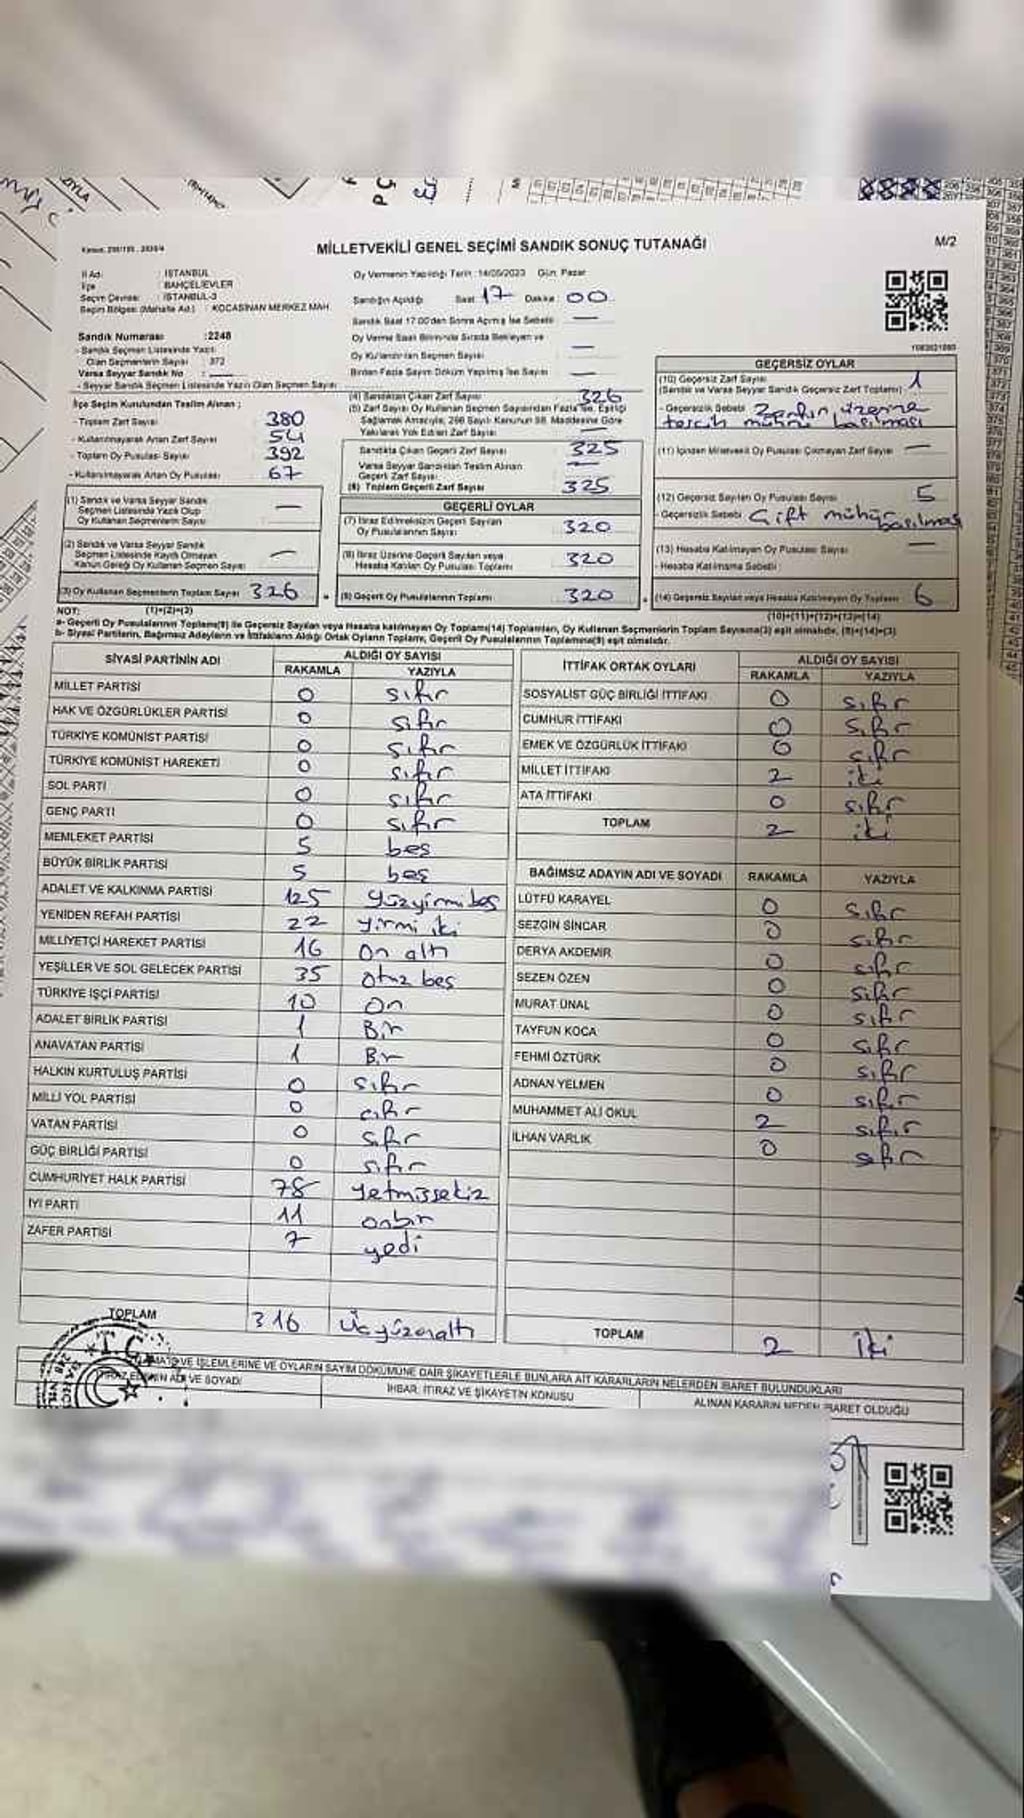 MİLLETVEKİLİ GENEL SEÇİMİ SANDIK SONUÇ TUTANAĞI
M/2
İl Adı : İSTANBUL
İlçe : BAHÇELİEVLER
Seçim Çevresi : İSTANBUL-3
Seçim Bölgesi (Mahalle Adı) : KOCASİNAN MERKEZ MAH.
Sandık Numarası :2248
- Sandık Seçmen Listesinde Yazılı
Olan Seçmenlerin Sayısı : 372
Varsa Seyyar Sandık No : —
- Seyyar Sandık Seçmen Listesinde Yazılı Olan Seçmen Sayısı
İlçe Seçim Kurulundan Teslim Alınan ;
- Toplam Zarf Sayısı 380
- Kullanılmayarak Artan Zarf Sayısı 54
- Toplam Oy Pusulası Sayısı 392
- Kullanılmayarak Artan Oy Pusulası 67
(1) Sandık ve Varsa Seyyar Sandık
Seçmen Listesinde Yazılı Olup
Oy Kullanan Seçmenlerin Sayısı —
(2) Sandık ve Varsa Seyyar Sandık
Seçmen Listesinde Kayıtlı Olmayan
Kanun Gereği Oy Kullanan Seçmen Sayısı —
(3) Oy Kullanan Seçmenlerin Toplam Sayısı 326
(1)+(2)=(3)
Oy Vermenin Yapıldığı Tarih :14/05/2023 Gün: Pazar
Sandığın Açıldığı Saat 17 Dakika 00
Sandık Saat 17:00'den Sonra Açılmış İse Sebebi —
Oy Verme Saati Bitiminde Sırada Bekleyen ve
Oy Kullandırılan Seçmen Sayısı —
Birden Fazla Sayım Döküm Yapılmış İse Sayısı —
(4) Sandıktan Çıkan Zarf Sayısı 326
(5) Zarf Sayısı Oy Kullanan Seçmen Sayısından Fazla İse, Eşitliği
Sağlamak Amacıyla; 298 Sayılı Kanunun 98. Maddesine Göre
Yakılarak Yok Edilen Zarf Sayısı —
Sandıkta Çıkan Geçerli Zarf Sayısı 325
Varsa Seyyar Sandıktan Teslim Alınan
Geçerli Zarf Sayısı —
(6) Toplam Geçerli Zarf Sayısı 325
GEÇERLİ OYLAR
(7) İtiraz Edilmeksizin Geçerli Sayılan
Oy Pusulalarının Sayısı 320
(8) İtiraz Üzerine Geçerli Sayılan veya
Hesaba Katılan Oy Pusulaları Toplamı 320
(9) Geçerli Oy Pusulalarının Toplamı 320
GEÇERSİZ OYLAR
(10) Geçersiz Zarf Sayısı 1
(Sandık ve Varsa Seyyar Sandık Geçersiz Zarf Toplamı)
- Geçersizlik Sebebi Zarfın üzerine
tercih mührü basılması
(11) İçinden Milletvekili Oy Pusulası Çıkmayan Zarf Sayısı —
(12) Geçersiz Sayılan Oy Pusulası Sayısı 5
- Geçersizlik Sebebi Çift mühür basılması
(13) Hesaba Katılmayan Oy Pusulası Sayısı —
- Hesaba Katılmama Sebebi
(14) Geçersiz Sayılan veya Hesaba Katılmayan Oy Toplamı 6
(10)+(11)+(12)+(13)=(14)
NOT:
a- Geçerli Oy Pusulalarının Toplamı(9) ile Geçersiz Sayılan veya Hesaba Katılmayan Oy Toplamı(14) Toplamları, Oy Kullanan Seçmenlerin Toplam Sayısına(3) eşit olmalıdır. (9)+(14)=(3)
b- Siyasi Partilerin, Bağımsız Adayların ve İttifakların Aldığı Ortak Oyların Toplamı, Geçerli Oy Pusulalarının Toplamına(9) eşit olmalıdır.
SİYASİ PARTİNİN ADI ALDIĞI OY SAYISI
RAKAMLA YAZIYLA
MİLLET PARTİSİ 0 sıfır
HAK VE ÖZGÜRLÜKLER PARTİSİ 0 sıfır
TÜRKİYE KOMÜNİST PARTİSİ 0 sıfır
TÜRKİYE KOMÜNİST HAREKETİ 0 sıfır
SOL PARTİ 0 sıfır
GENÇ PARTİ 0 sıfır
MEMLEKET PARTİSİ 5 beş
BÜYÜK BİRLİK PARTİSİ 5 beş
ADALET VE KALKINMA PARTİSİ 125 yüzyirmibeş
YENİDEN REFAH PARTİSİ 22 yirmi iki
MİLLİYETÇİ HAREKET PARTİSİ 16 on altı
YEŞİLLER VE SOL GELECEK PARTİSİ 35 otuz beş
TÜRKİYE İŞÇİ PARTİSİ 10 on
ADALET BİRLİK PARTİSİ 1 Bir
ANAVATAN PARTİSİ 1 Bir
HALKIN KURTULUŞ PARTİSİ 0 sıfır
MİLLİ YOL PARTİSİ 0 sıfır
VATAN PARTİSİ 0 sıfır
GÜÇ BİRLİĞİ PARTİSİ 0 sıfır
CUMHURİYET HALK PARTİSİ 78 yetmişsekiz
İYİ PARTİ 11 onbir
ZAFER PARTİSİ 7 yedi
TOPLAM 316 Üçyüzonaltı
İTTİFAK ORTAK OYLARI ALDIĞI OY SAYISI
RAKAMLA YAZIYLA
SOSYALİST GÜÇ BİRLİĞİ İTTİFAKI 0 sıfır
CUMHUR İTTİFAKI 0 sıfır
EMEK VE ÖZGÜRLÜK İTTİFAKI 0 sıfır
MİLLET İTTİFAKI 2 iki
ATA İTTİFAKI 0 sıfır
TOPLAM 2 iki
BAĞIMSIZ ADAYIN ADI VE SOYADI RAKAMLA YAZIYLA
LÜTFÜ KARAYEL 0 sıfır
SEZGİN SİNCAR 0 sıfır
DERYA AKDEMİR 0 sıfır
SEZEN ÖZEN 0 sıfır
MURAT ÜNAL 0 sıfır
TAYFUN KOCA 0 sıfır
FEHMİ ÖZTÜRK 0 sıfır
ADNAN YELMEN 0 sıfır
MUHAMMET ALİ OKUL 2 sıfır
İLHAN VARLIK 0 sıfır
TOPLAM 2 iki
VE İŞLEMLERİNE VE OYLARIN SAYIM DÖKÜMÜNE DAİR ŞİKAYETLERLE BUNLARA AİT KARARLARIN NELERDEN İBARET BULUNDUKLARI
İTİRAZ EDENİN ADI VE SOYADI İHBAR, İTİRAZ VE ŞİKAYETİN KONUSU ALINAN KARARIN NEDEN İBARET OLDUĞU
T.C.